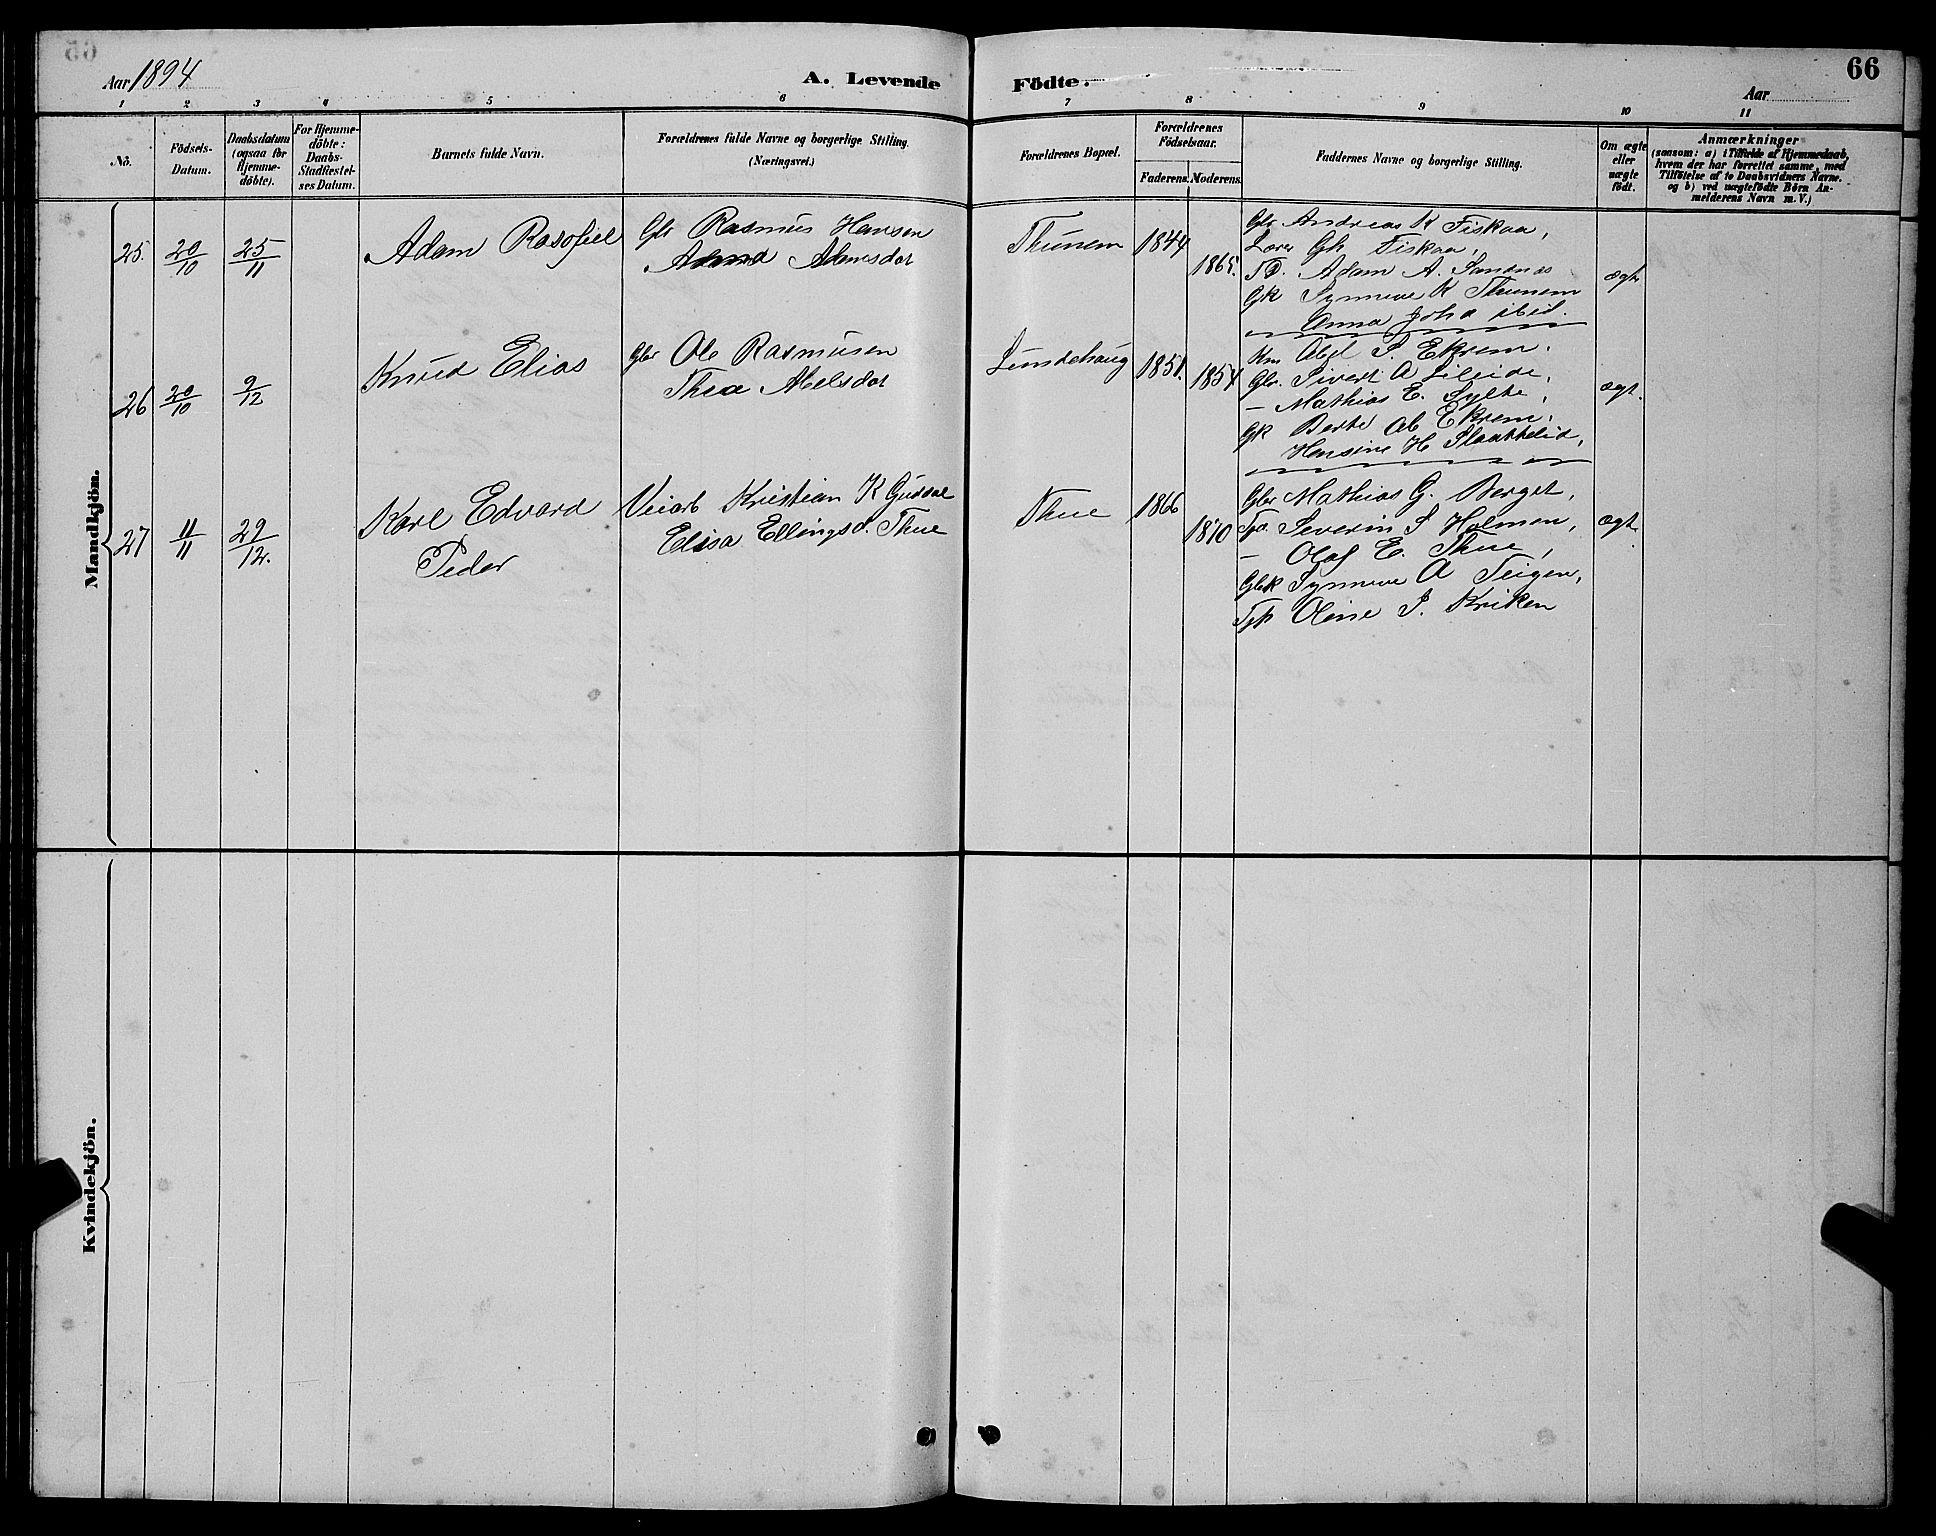 Aar 1894
A. Levende
Födte.
66
Aar
1 2 3 4 5 6 7 8 9 10 11
No.
Födsels-
Datum.
Daabsdatum
(ogsaa for
Hjemme-
döbte).
For Hjemme-
döbte:
Daabs-
Stadfæstel-
ses Datum.
Barnets fulde Navn.
Forældrenes fulde Navne og borgerlige Stilling.
(Næringsvei.)
Forældrenes Bopæl.
Forældrenes
Födselsaar.
Faderens. Moderens.
Faddernes Navne og borgerlige Stilling.
Om ægte
eller
uægte
födt.
Anmærkninger
(saasom: a) i Tilfælde af Hjemmedaab,
hvem der har forrettet samme, med
Tilföielse af to Daabsvidners Navne.
og b) ved uægtefödte Börn An-
melderens Navn m. V.)
Mandkjön.
25. 20/10 25/11
Adam Rasofiel
Gbr Rasmus Hansen
Adamsdot
Thunem
1844
1865.
Gbr Andreas K Fiskaa,
Lærer Gh Fiskaa,
Adam A. Sandnæs
Gk Synneve K Thunem
Anna Joha ibid.
ægt
26 20/10 9/12
Knud Elias
Gbr Ole Rasmusen
Thea Abelsdot
Lundehaug
1851.
1854
Km Abel S. Ekrem.
Gbr. Sivert A Lileide,
— Mathias E. Sylte,
Gk Berte Ab Ekrem.
Hensine H Slaattelid,
ægt.
27 11/11 29/12.
Karl Edvard
Peder
Veiarb Kristian K Gusdal
Elisa Ellingsd. Thue
Thue
1866
1870
Gbr Mathias G. Berget,
Severin S Holmen,
— Olaf E. Thue,
Gbk Synneve A Teigen,
Tpk Oline S. Kriken
ægt
Kvindekjön.